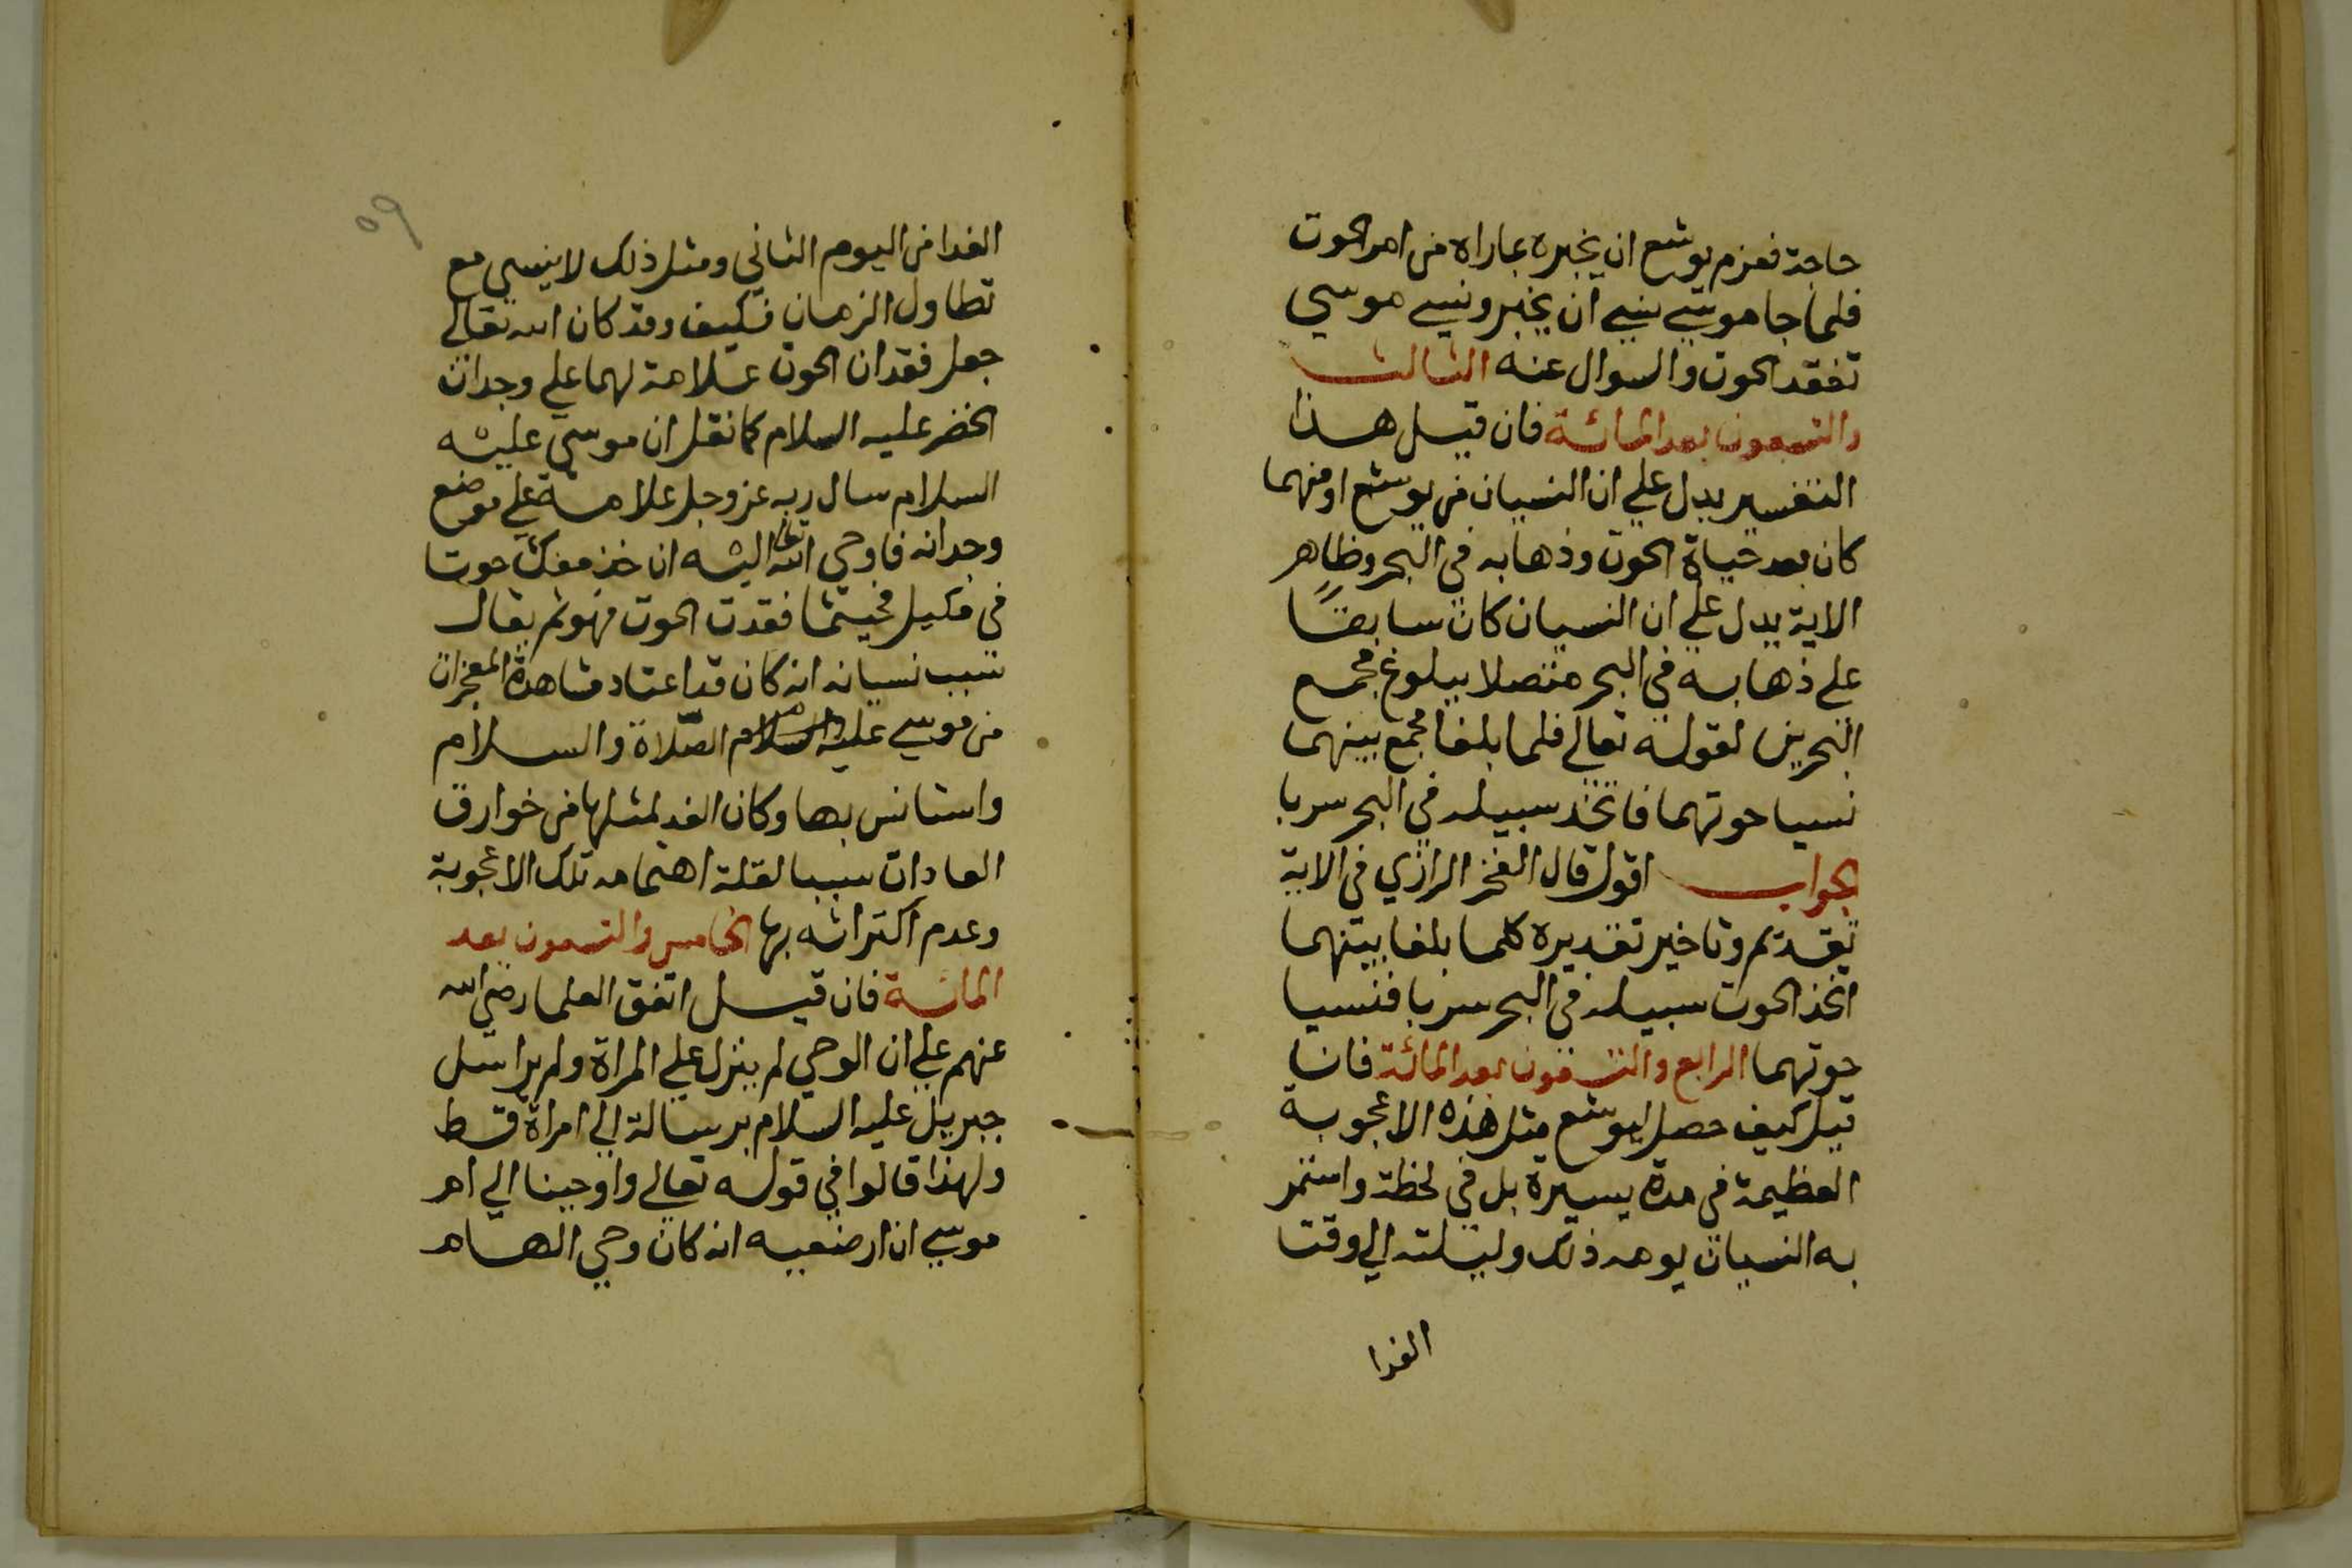 حاجة فعزم يوشع ان يخبره بماراه من امر الحوت
فلما جا موسي نسي ان يخبر ونسي موسي
تفقد الحوت والسوال عنه الثالث
والتسعون بعد المائة فان قيل هذا
التفسير يدل علي ان النسيان من يوشع او منهما
كان بعد حياة الحوت وذهابه في البحر وظاهر
الاية يدل علي ان النسيان كان سابقًا
علي ذهابه في البحر متصلا ببلوغ مجمع
البحرين لقوله تعالي فلما بلغا مجمع بينهما
نسيا حوتهما فاتخذ سبيله في البحر سربا
الجواب اقول قال الفخر الرازي في الاية
تقديم وتاخير تقديره كلما بلغا بينهما
اتخذ الحوت سبيله في البحر سربا فنسيا
حوتهما الرابع والتسعون بعد المائة فان
قيل كيف حصل ليوشع مثل هذه الاعجوبة
العظيمة في مدة يسيرة بل في لحظة واستمر
به النسيان يومه ذلك وليلته الي وقت
الغدا
٩٥
الغدا من اليوم الثاني ومثل ذلك لا ينسي مع
تطاول الزمان فكيف وقد كان الله تعالي
جعل فقدان الحوت علامة لهما علي وجدان
الخضر عليه السلام كما نقل ان موسي عليه
السلام سال ربه عز وجل علامة علي موضع
وجدانه فاوحي الله تعا اليه ان خذ معك حوتا
في مكيل فحيثما فقدت الحوت فهو ثم يقال
سبب نسيانه انه كان قد اعتاد مشاهدة المعجزات
من موسي عليه السلام الصلاة والسلام
واستانس بها وكان الفه لمثلها من خوارق
العادات سببا لقلة اهتمامه تلك الاعجوبة
وعدم اكتراثه بها الخامس والتسعون بعد
المائة فان قيل اتفق العلما رضي الله
عنهم علي ان الوحي لم ينزل علي المراة ولم يراسل
جبريل عليه السلام برسالة الي امراة قط
ولهذا قالوا في قوله تعالي واوحينا الي ام
موسي ان ارضعيه انه كان وحي الهام